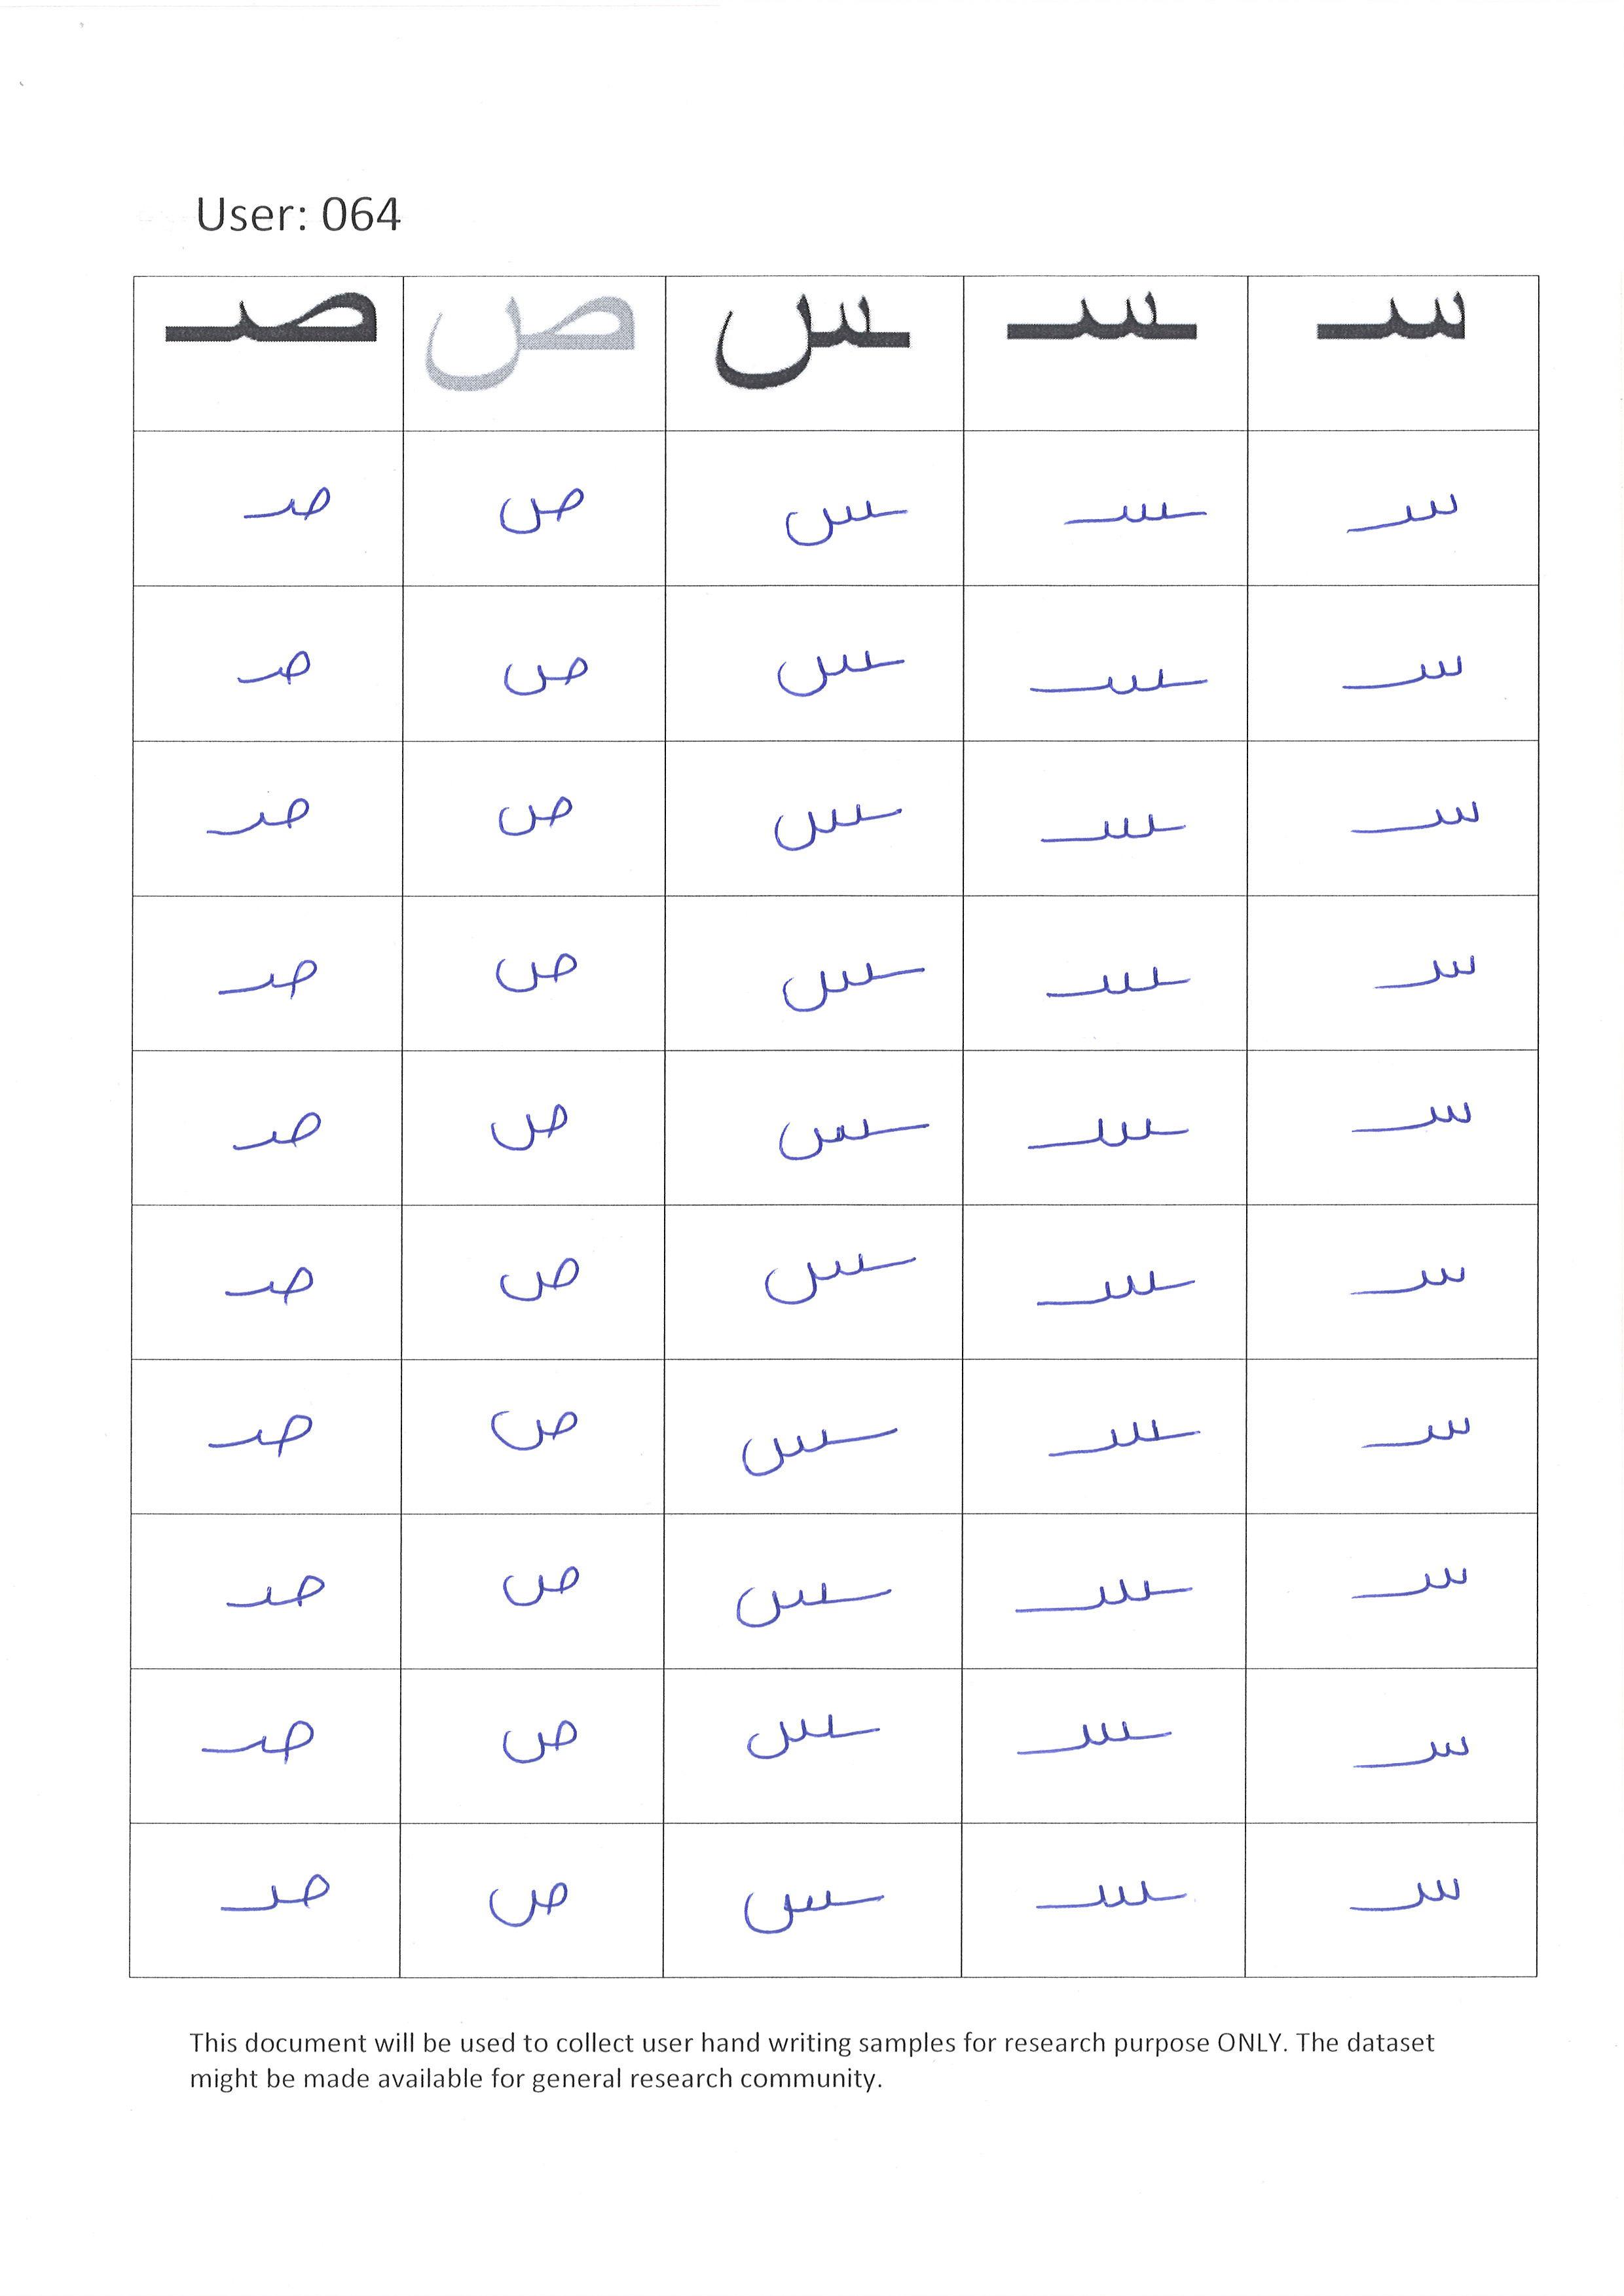 User: 064
سـ ـسـ ـس ص صـ
سـ ـسـ ـس ص صـ
سـ ـسـ ـس ص صـ
سـ ـسـ ـس ص صـ
سـ ـسـ ـس ص صـ
سـ ـسـ ـس ص صـ
سـ ـسـ ـس ص صـ
سـ ـسـ ـس ص صـ
سـ ـسـ ـس ص صـ
سـ ـسـ ـس ص صـ
سـ ـسـ ـس ص صـ
This document will be used to collect user hand writing samples for research purpose ONLY. The dataset
might be made available for general research community.